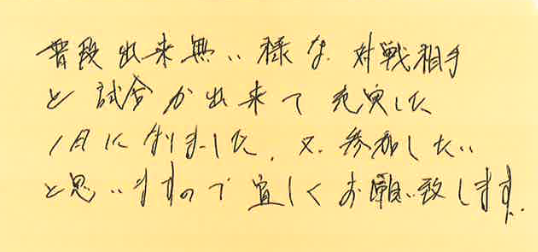 普段出来無い様な対戦相手
と試合が出来て充実した
1日になりました。又、参加したい
と思いますので宜しくお願い致します。